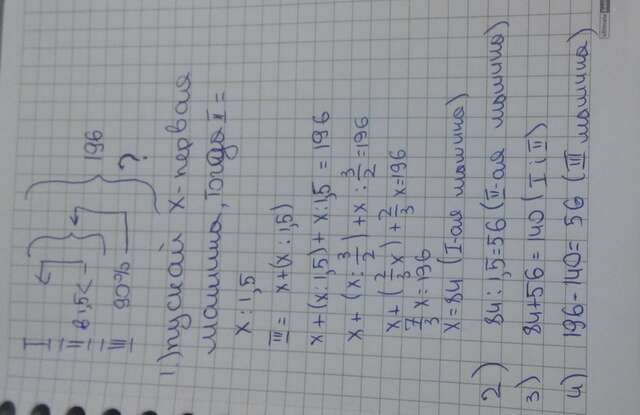 I
II в 1,5 <
III 90%
196
?
1.) пускай х - первая
машина, тогда II =
х : 1,5
III = х+(х : 1,5)
х + (х : 1,5) + х : 1,5 = 196
х + (х : 3/2) + х : 3/2 = 196
х + (2/3 х) + 2/3 х = 196
7/3 х = 196
х = 84 (I-ая машина)
2) 84 : 1,5 = 56 (II-ая машина)
3) 84+56 = 140 (I i II)
4) 196 - 140 = 56 (III машина)